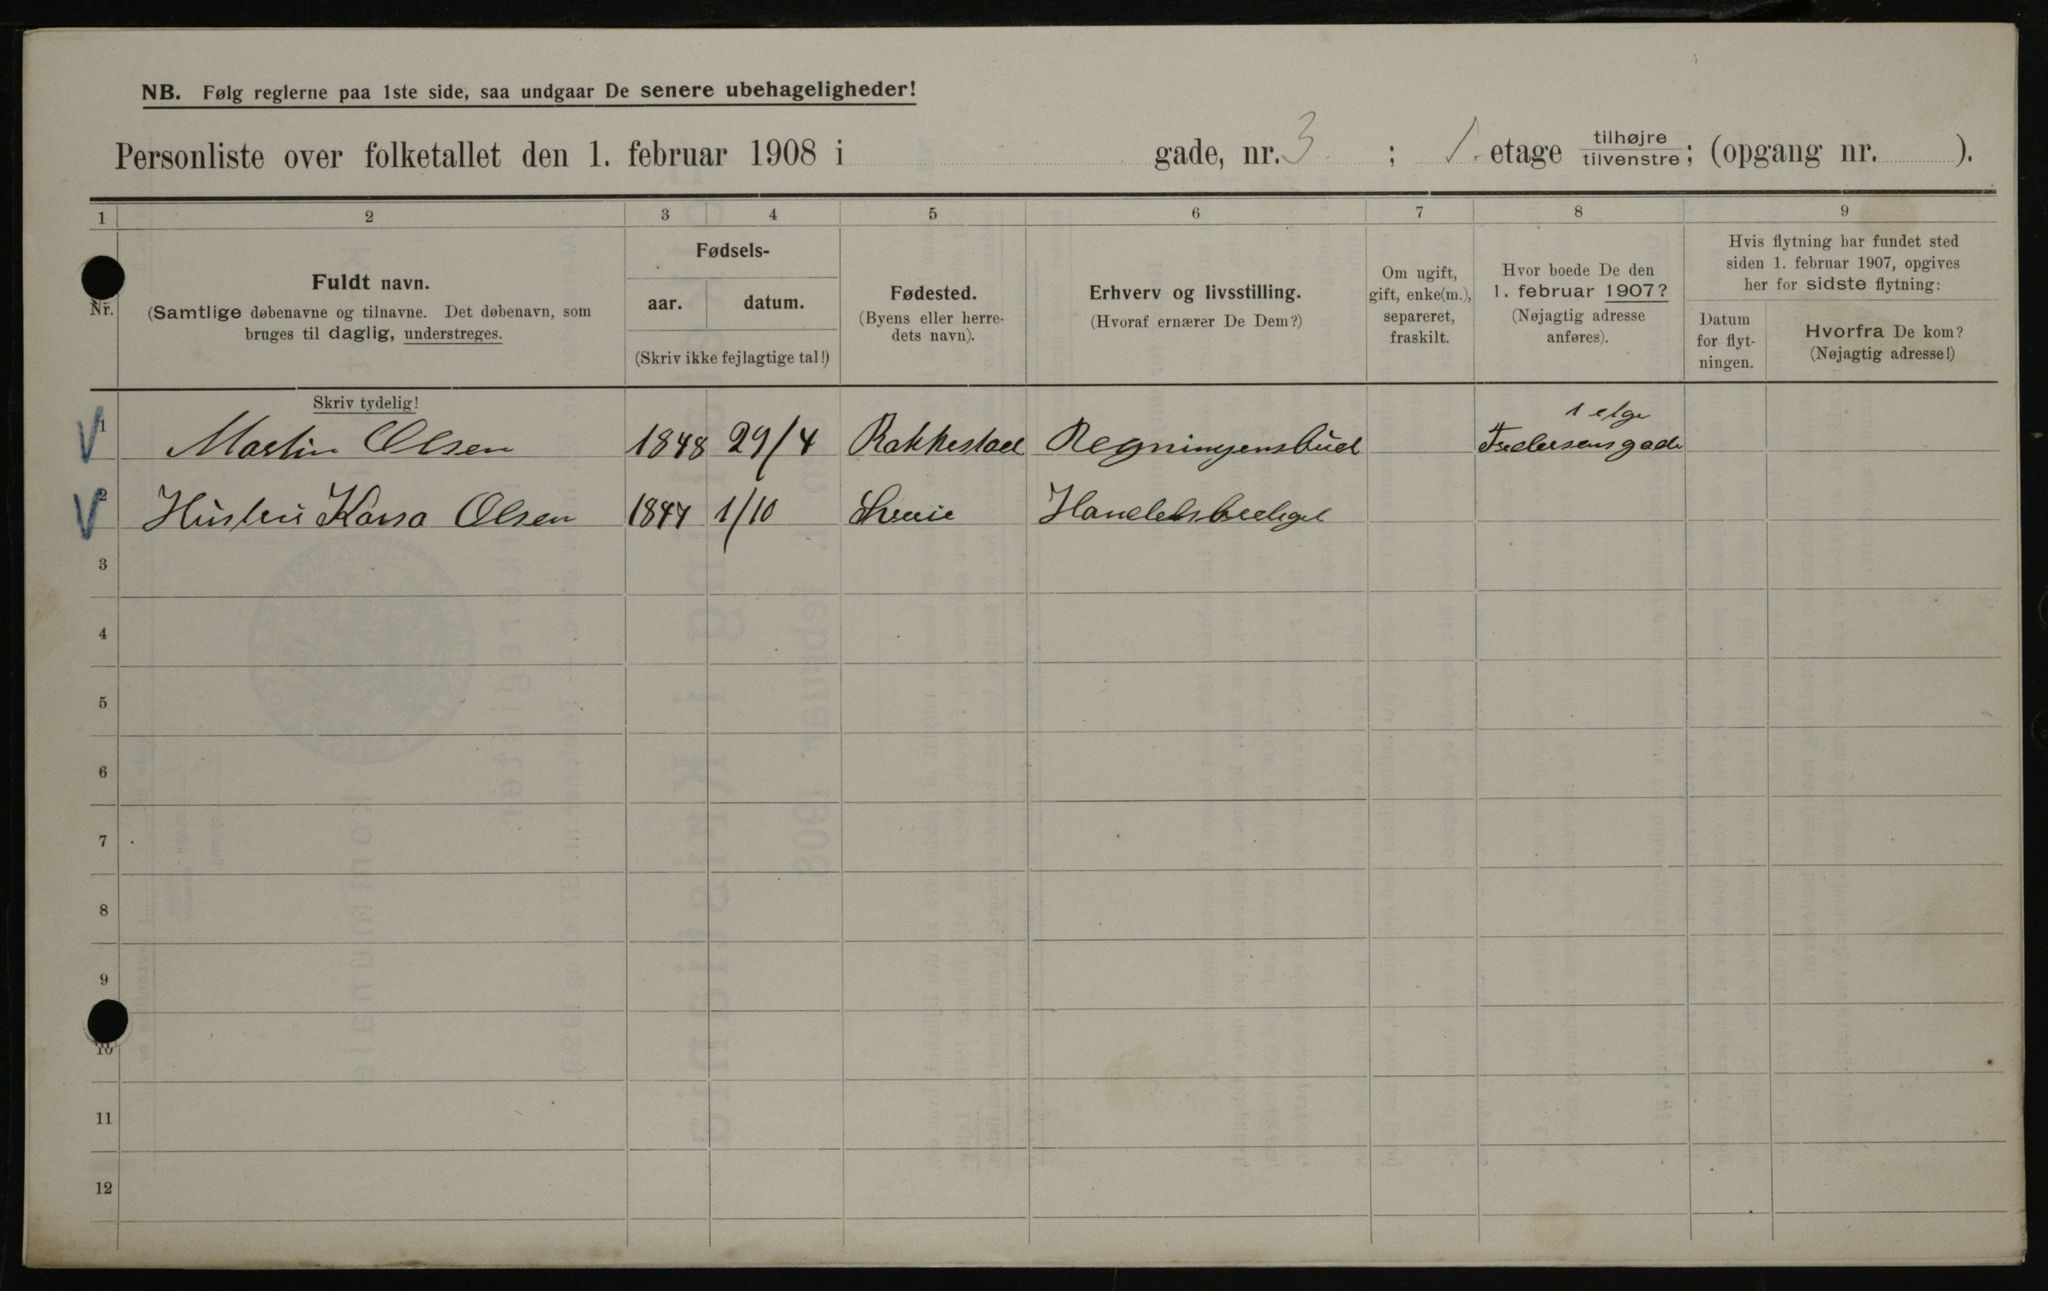 NB. Følg reglerne paa 1ste side, saa undgaar De senere ubehageligheder!
Personliste over folketallet den 1. februar 1908 i gade, nr. 3 ; 1. etage tilhøjre/tilvenstre; (opgang nr. ).
1 2 3 4 5 6 7 8 9
Nr.
Fuldt navn.
(Samtlige døbenavne og tilnavne. Det døbenavn, som
bruges til daglig, understreges.
Skriv tydelig!
Fødsels-
aar. datum.
(Skriv ikke fejlagtige tal!)
Fødested.
(Byens eller herre-
dets navn).
Erhverv og livsstilling.
(Hvoraf ernærer De Dem?)
Om ugift,
gift, enke(m.),
separeret,
fraskilt.
Hvor boede De den
1. februar 1907?
(Nøjagtig adresse
anføres).
Hvis flytning har fundet sted
siden 1. februar 1907, opgives
her for sidste flytning:
Datum
for flyt-
ningen.
Hvorfra De kom?
(Nøjagtig adresse!)
1 etg
1 Martin Olsen 1848 29/4 Rakkestad Regningensbud
2 Hustru Olsen 1847 1/10
3
4
5
6
7
8
9
10
11
12